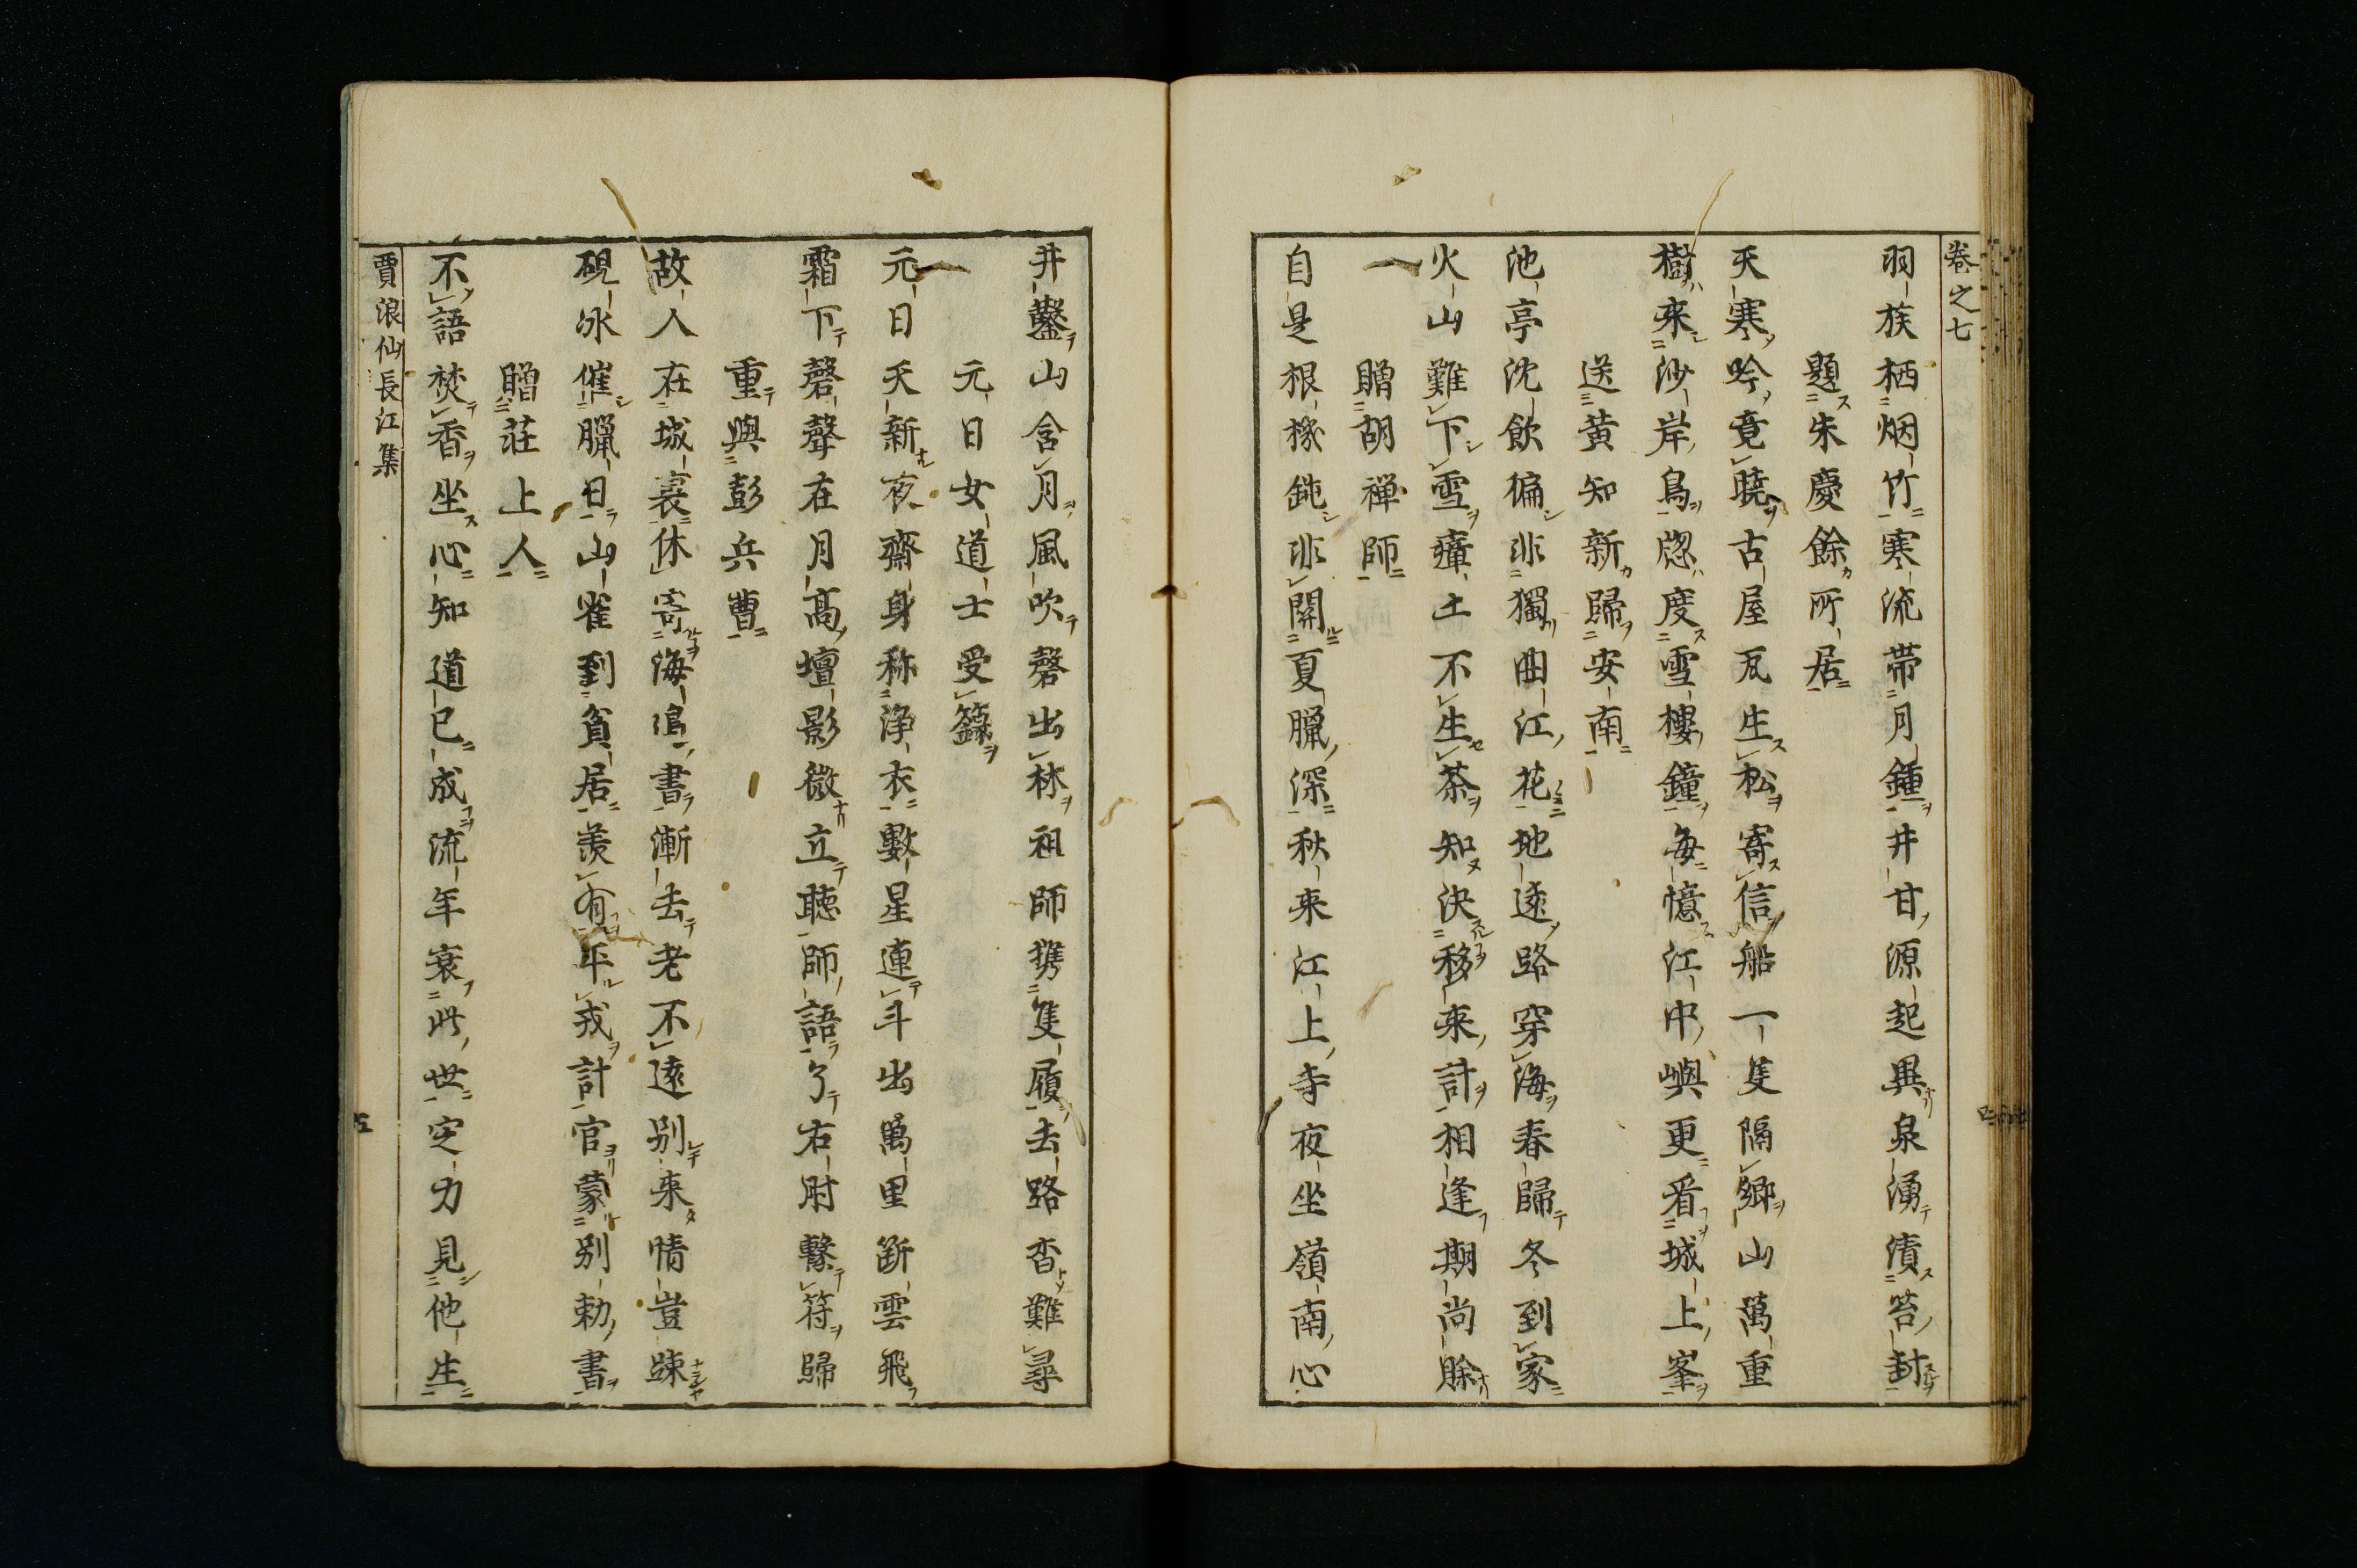 卷之七
羽族栖烟竹寒流帶月鍾井甘源起異泉湧漬苔封
題朱慶餘所居
天寒吟竟曉古屋瓦生松寄信船一隻隔鄉山萬重
樹來沙岸鳥窓度雪樓鐘每憶江中嶼更看城上峯
送黄知新歸安南
池亭沈飲徧非獨曲江花地遠路穿海春歸冬到家
火山難下雪瘴土不生茶知決移來計相逢期尚賒
贈胡禅師
自是根機鈍非關夏臘深秋來江上寺夜坐嶺南心
井鑿山含月風吹磬出林祖師携隻履去路杳難尋
元日女道士受籙
元日天新夜齋身称浄衣數星連斗出萬里斷雲飛
霜下磬聲在月高壇影微立聴師語了右肘繫符歸
重與彭兵曹
故人在城裏休寄海邊書漸去老不遠别來情豈踈
硯冰催臘日山雀到貧居羨有平戎計官蒙别勅書
贈莊上人
不語焚香坐心知道已成流年衰此世定力見他生
賈浪仙長江集
五